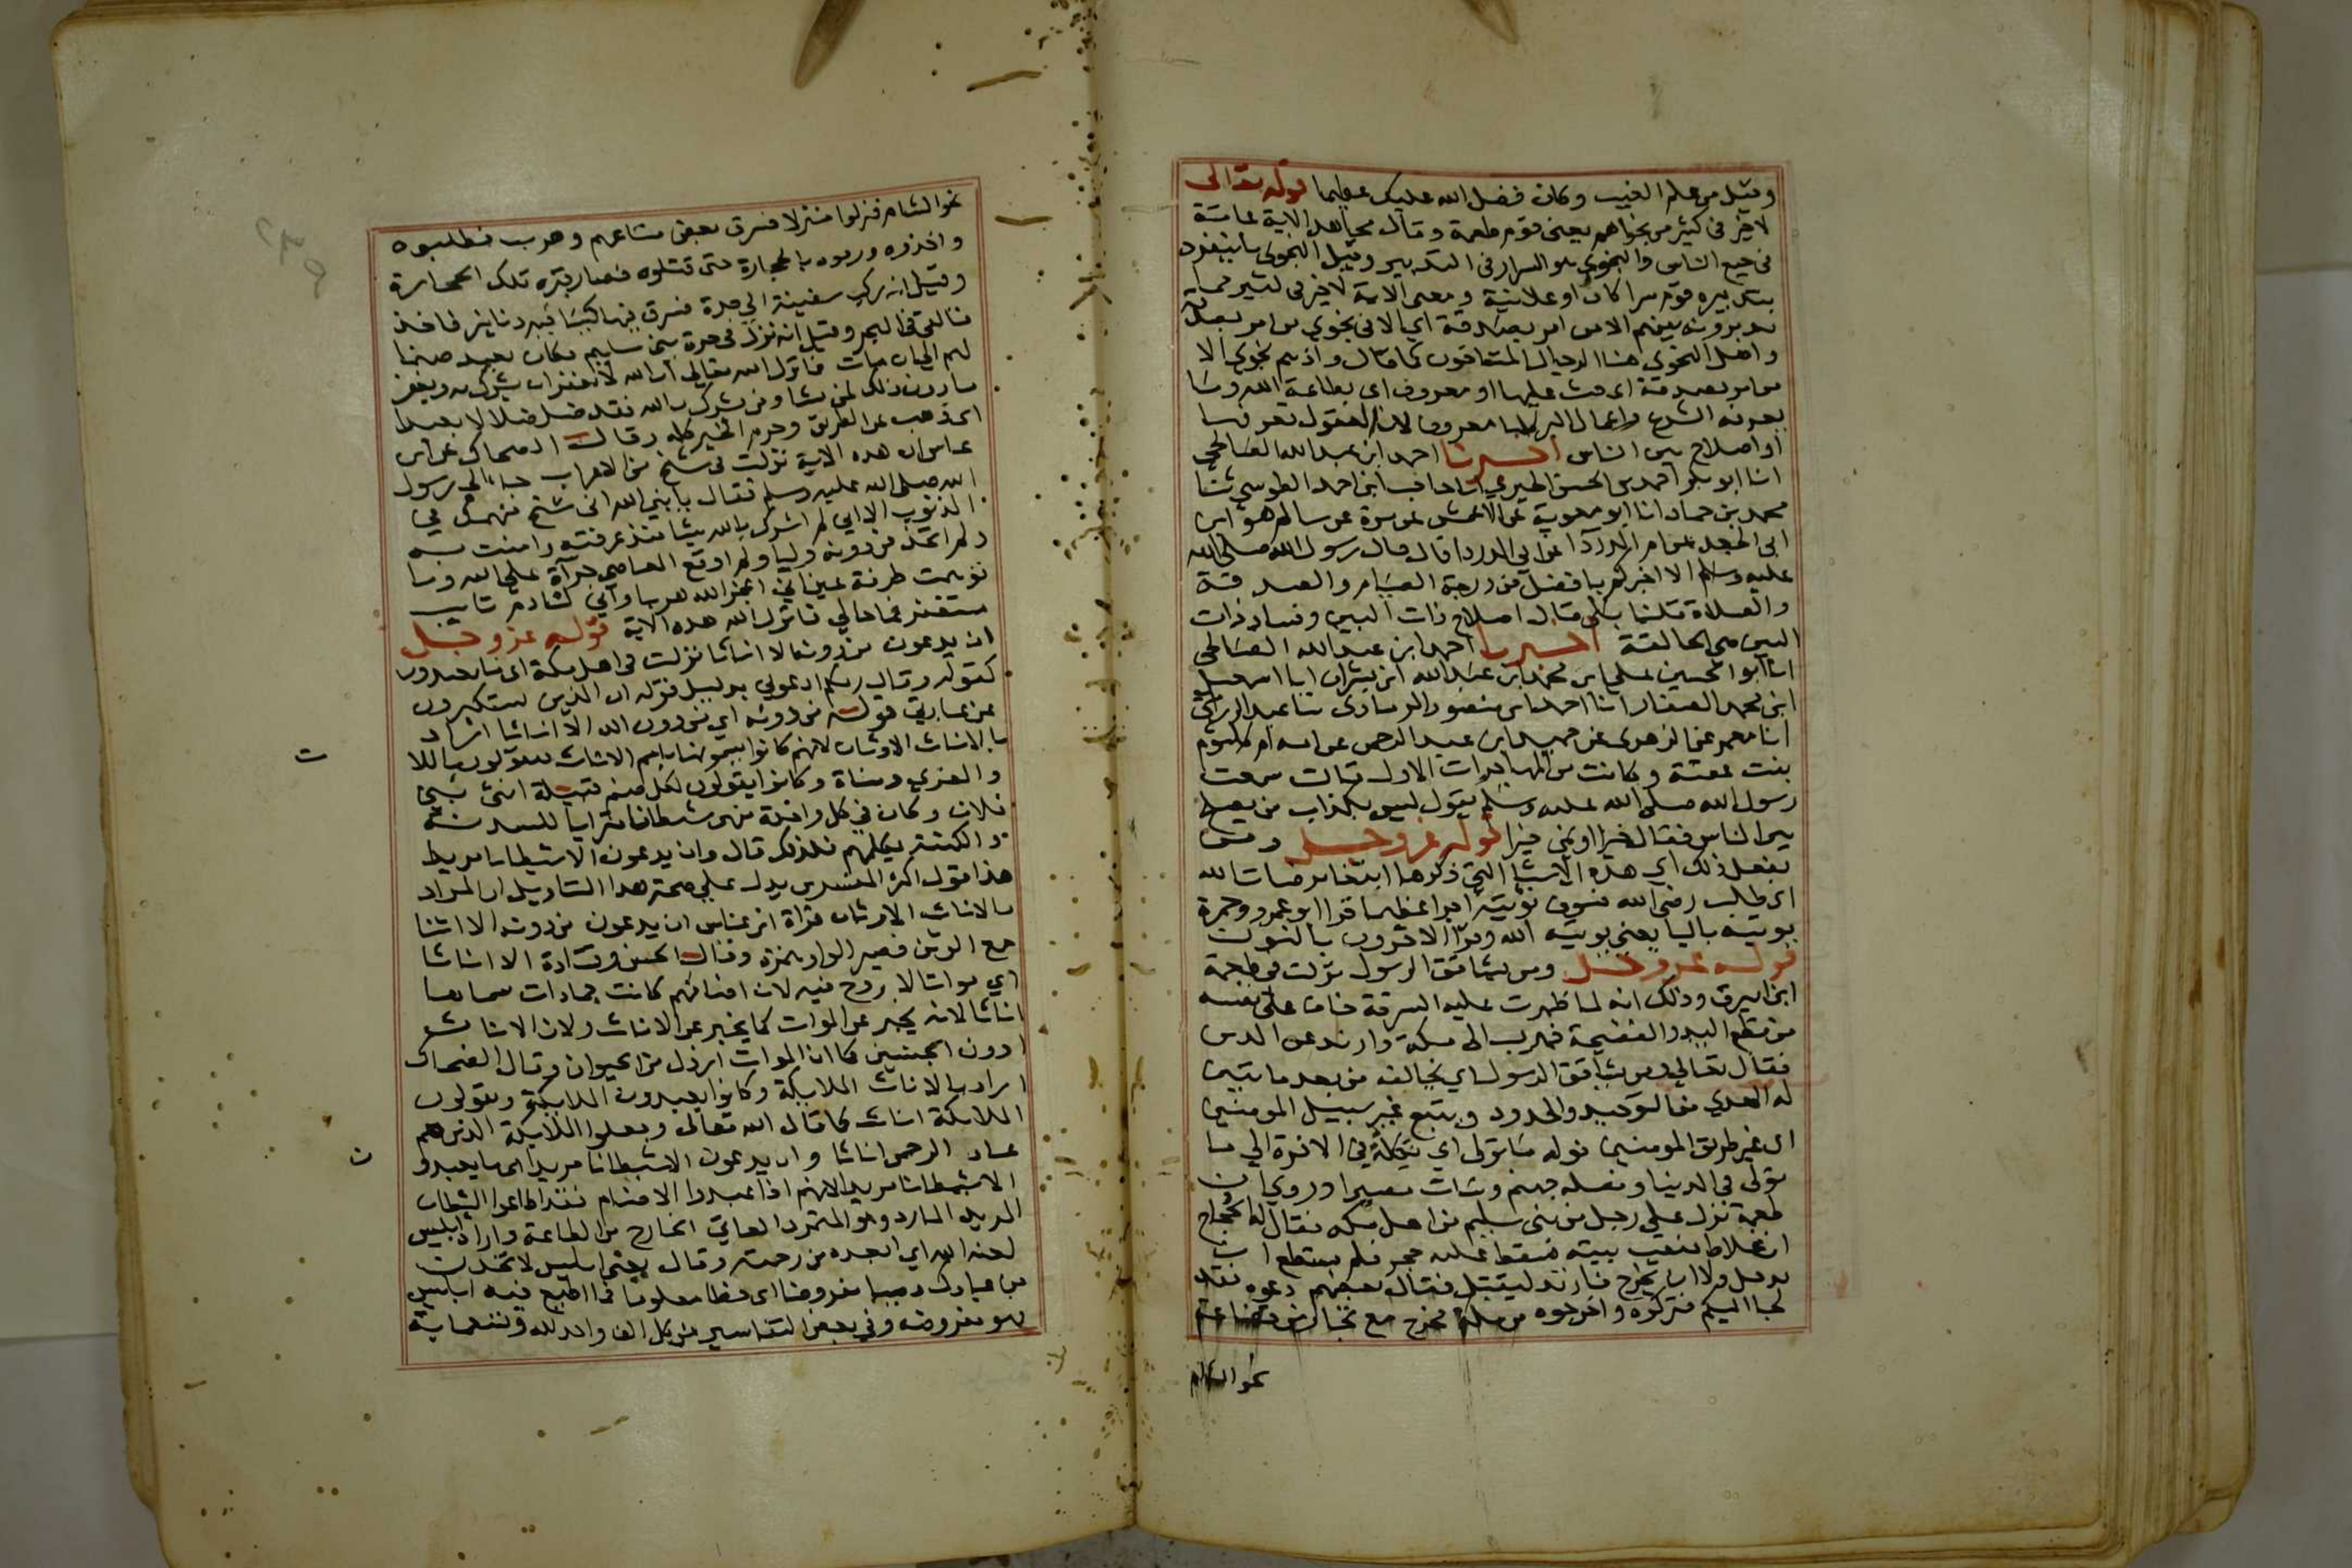 وقيل من علم الغيب وكان فضل الله عليك عظيما قوله تعالى
لا خير في كثير من نجواهم يعني قوم طعمة وقال مجاهد الاية عامة
في جميع الناس والنجوى هو السرار في التدبير وقيل النجوى ما ينفرد
بتدبيره قوم سرا كان او علانية ومعنى الاية لا خير في كثير مما
يدبرونه بينهم الا من امر بصدقة اي الا في نجوى من امر بصدقة
واهل النجوى هنا الرجال المتناجون كما قال واذ هم نجوى الا
من امر بصدقة اي حث عليها او معروف اي بطاعة الله وما
يعرفه الشرع واعمال البر كلها معروف لان العقول تعرفها
او اصلاح بين الناس اخبرنا احمد ابن عبد الله الصالحي
انا ابو بكر احمد بن الحسن الحيري انا حاجب ابن احمد الطوسي ثنا
محمد بن حماد انا ابو معوية عن الاعمش عن عمرو بن مرة عن سالم هو ابن
ابي الجعد عن ام الدردآ عن ابي الدردا قال قال رسول الله صلى الله
عليه وسلم الا اخبركم بافضل من درجة الصيام والصدقة
والصلاة قلنا بلى قال اصلاح ذات البين وفساد ذات
البين هي الحالقة اخبرنا احمد ابن عبد الله الصالحي
انا ابو الحسين علي ابن محمد ابن عبد الله ابن بشران انا اسمعيل
ابن محمد الصفار انا احمد ابن منصور الرمادي ثنا عبد الرزاق
انا معمر عن الزهري عن حميد ابن عبد الرحمن عن امه ام كلثوم
بنت عقبة وكانت من المهاجرات الاول قالت سمعت
رسول الله صلى الله عليه وسلم يقول ليس بكذاب من يصلح
بين الناس فقال خيرا او نمى خيرا قوله عز وجل ومن
يفعل ذلك اي هذه الاشيا التي ذكرها ابتغا مرضات الله
اي طلب رضى الله فسوف نؤتيه اجرا عظيما قرا ابو عمرو وحمزة
يوتيه باليا يعني يوتيه الله وقرا الاخرون بالنون
قوله عز وجل ومن يشاقق الرسول نزلت في طعمة
ابن ابيرق وذلك انه لما ظهرت عليه السرقة خاف على نفسه
من قطع اليد والفضيحة فهرب الى مكة وارتد عن الدين
فقال تعالى ومن يشاقق الرسول اي يخالفه من بعد ما تبين
له الهدي من التوحيد والحدود ويتبع غير سبيل المومنين
اي غير طريق المومنين نوله ما تولى اي نكله في الاخرة الي ما
تولى في الدنيا ونصله جهنم وسات مصيرا وروي ان
طعمة نزل علي رجل من بني سليم من اهل مكه يقال له الحجاج
ابن علاط فنقب بيته فسقط عليه حجر فلم يستطع ان
يدخل ولا ان يخرج فاخذ ليقتل فقال بعضهم دعوه فقد
لجا اليكم فتركوه واخرجوه من مكة فخرج مع تجار من قضاعة
نحو الشام
نحو الشام فنزلوا منزلا فسرق بعض متاعهم وهرب فطلبوه
واخذوه ورموه بالحجارة حتى قتلوه فصار قبره تلك الحجارة
وقيل انه ركب سفينة الي جدة فسرق فيها كيسا فيه دنانير فاخذ
فالقي في البحر وقيل انه نزل في حرة بني سليم فكان يعبد صنما
لهم الي ان مات فانزل الله تعالى ان الله لا يغفر ان يشرك به ويغفر
ما دون ذلك لمن يشا ومن يشرك بالله فقد ضل ضلالا بعيدا
اي ذهب عن الطريق وحرم الخير كله وقال الضحاك عن ابن
عباس ان هذه الاية نزلت في شيخ من الاعراب جاء الي رسول
الله صلى الله عليه وسلم فقال يا نبي الله اني شيخ منهمك في
الذنوب الا اني لم اشرك بالله شيئا منذ عرفته وامنت به
ولم اتخذ من دونه وليا ولم اوقع المعاصي جرآة على الله وما
توهمت طرفة عين اني اعجز الله هربا واني لنادم تايب
مستغفر فما حالي فانزل الله هذه الاية قوله عز وجل
ان يدعون من دونه الا اناثا نزلت في اهل مكة اي ما يعبدون
كقوله وقال ربكم ادعوني بدليل قوله ان الذين يستكبرون
عن عبادتي قوله من دونه اي من دون الله الا اناثا اراد
بالاناث الاوثان لانهم كانوا يسمونها باسم الاناث يقولون اللا
والعزي ومناة وكانوا يقولون لكل صنم قبيلة انثى بني
فلان وكان في كل واحدة منهن شيطان يترايا للسدنة
والكهنة يكلمهم فلذلك قال وان يدعون الا شيطانا مريدا
هذا قول اكثر المفسرين يدل علي صحة هذا التاويل ان المراد
بالاناث الاوثان قراة ابن عباس ان يدعون من دونه الا اثنا
جمع الوثن فصير الواو همزة وقال الحسن وقتادة الا اناثا
اي مواتا لا روح فيه لان اصنامهم كانت جمادات سماها
اناثا لانه يخبر عن الموات كما يخبر عن الاناث ولان الاناث
ادون الجنسين كما ان الموات ارذل من الحيوان وقال الضحاك
اراد بالاناث الملايكة وكانوا يعبدون الملايكة ويقولون
الملايكة اناث كما قال الله تعالى وجعلوا الملايكة الذين هم
عباد الرحمن اناثا وان يدعون الا شيطانا مريدا اي ما يعبدو
الا شيطانا مريدا لانهم اذا عبدوا الاصنام فقد اطاعوا الشيطان
المريد المارد وهو المتمرد العاتي الخارج من الطاعة واراد ابليس
لعنه الله اي ابعده من رحمته وقال يعني ابليس لاتخذن
من عبادك نصيبا مفروضا اي حظا معلوما فما اطيع فيه ابليس
فهو مفروضه وفي بعض التفاسير من كل الف واحد لله وتسعماية